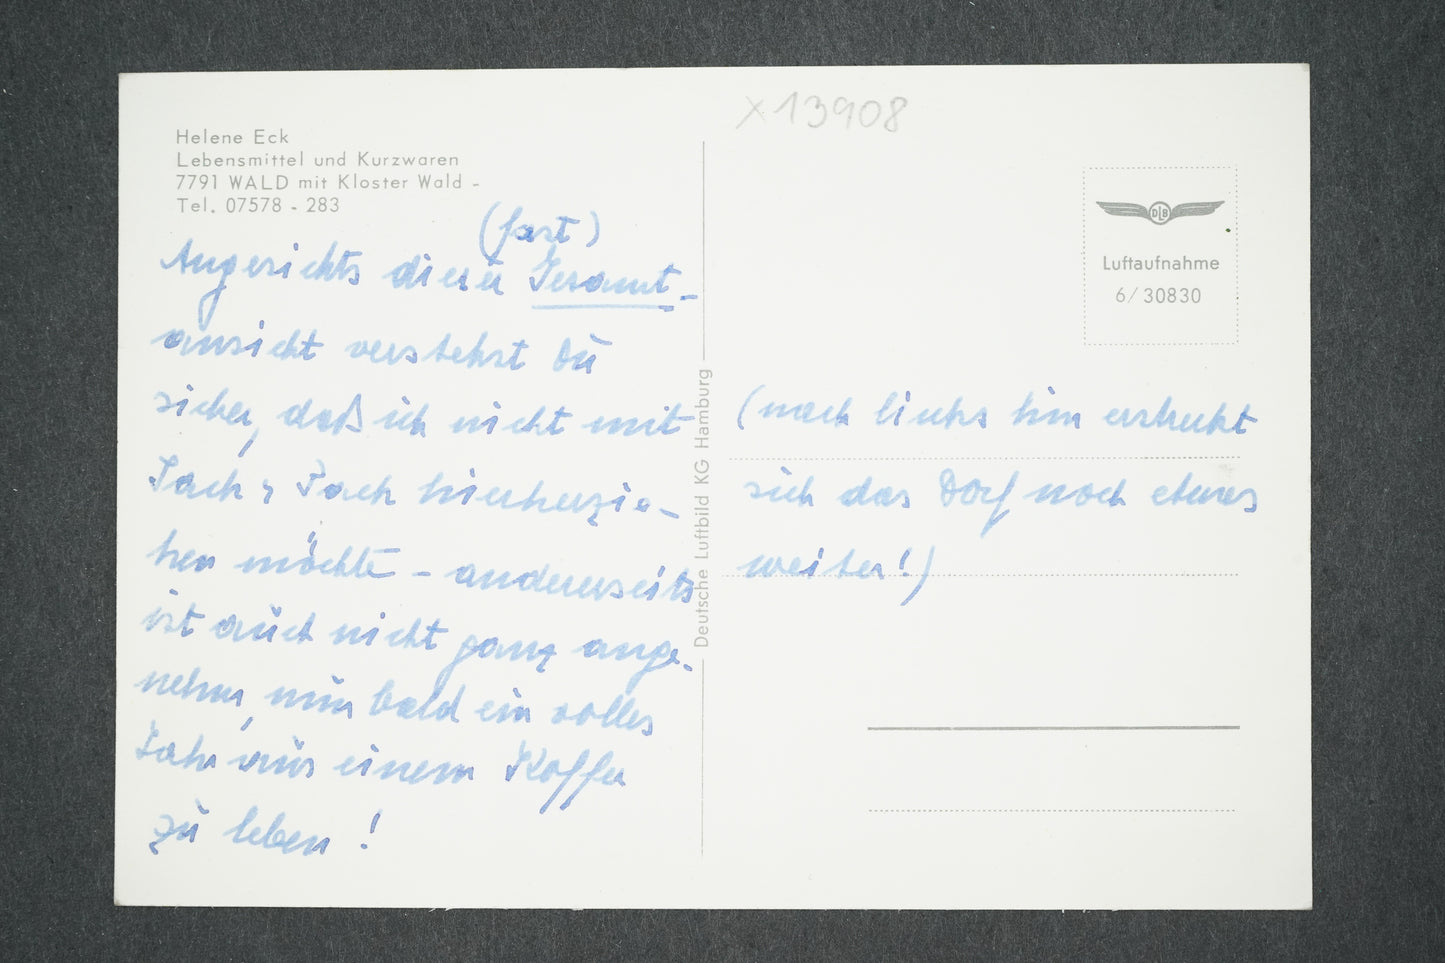 x13908
Helene Eck
Lebensmittel und Kurzwaren
7791 WALD mit Kloster Wald -
Tel. 07578 - 283
(fast)
Angesichts dieser Gesamt-
ansicht verstehst Du
sicher, daß ich nicht mit
Sack & Pack hierherzie-
hen möchte - andererseits
ist auch nicht ganz ange-
nehm, nun bald ein volles
Jahr aus einem Koffer
zu leben!
Deutsche Luftbild KG Hamburg
DLB
Luftaufnahme
6/30830
(nach links hin erstreckt
sich das Dorf noch etwas
weiter!)